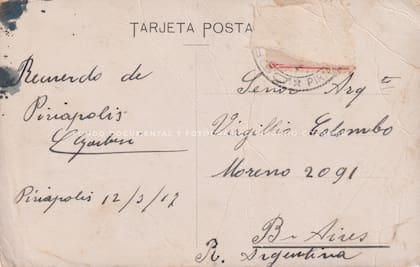 TARJETA POSTA
Recuerdo de
Piriapolis
Piriapolis 12/3/17
Señor Arq
Virgilio Colombo
Moreno 2091
B Aires
R. Argentina